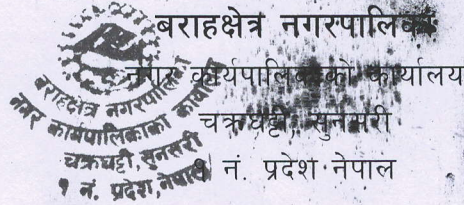 बराहक्षेत्र नगरपालिका
नगर कार्यपालिकाको कार्यालय
चक्रघट्टी, सुनसरी
१ नं. प्रदेश नेपाल
बराहक्षेत्र नगरपालिका
नगर कार्यपालिकाको कार्यालय
चक्रघट्टी, सुनसरी
१ नं. प्रदेश, नेपाल